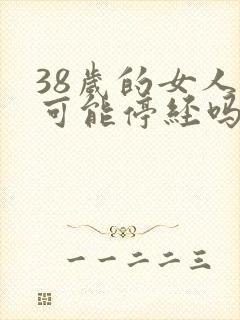 38歲的女人
可能停经吗
一一二二三